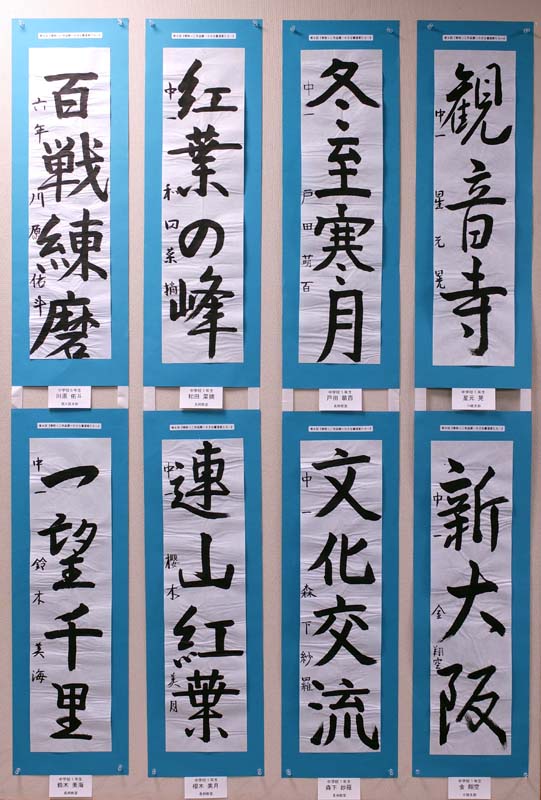 観音寺
中一 星元晃
冬至寒月
中一 戸田萌百
紅葉の峰
中一 和田菜摘
百戦練磨
六年 川原佑斗
中学校1年生
星元 晃
中学校1年生
戸田 萌百
長岡教室
中学校1年生
和田 菜摘
長岡教室
川原 佑斗
新大阪
中一 金翔空
文化交流
中一 森下紗羅
連山紅葉
中一 櫻木美月
一望千里
中一 鈴木美海
中学校1年生
金 翔空
中学校1年生
森下 紗羅
長岡教室
中学校1年生
櫻木 美月
長岡教室
中学校1年生
鈴木 美海
長岡教室